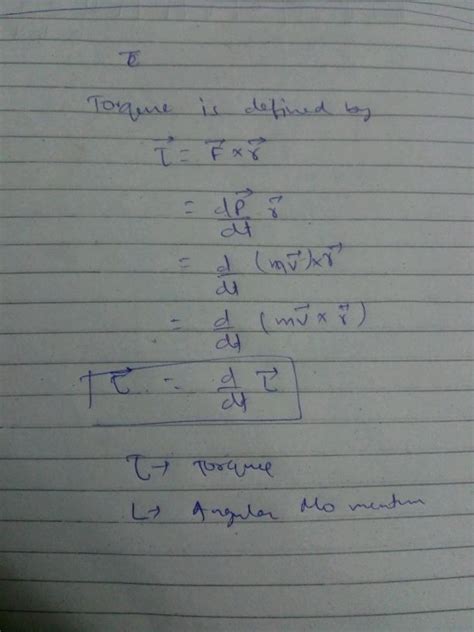 τ
Torque is defined by
τ⃗ = F⃗ × r⃗
= dP⃗/dt r⃗
= d/dt (mv⃗) × r⃗
= d/dt (mv⃗ × r⃗)
τ⃗ = d/dt τ⃗
τ → Torque
L → Angular Momentum